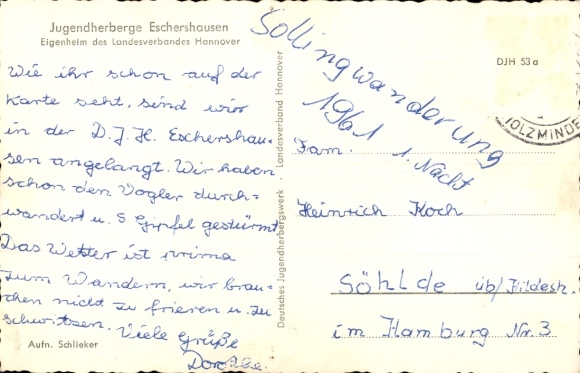 Jugendherberge Eschershausen
Eigenheim des Landesverbandes Hannover
Wie ihr schon auf der
Karte seht, sind wir
in der D.J.H. Eschershau-
sen angelangt. Wir haben
schon den Vogler durch-
wandert u. 5 Gipfel gestürmt
Das Wetter ist prima
zum Wandern, wir brau-
chen nicht zu frieren u. zu
schwitzen. Viele Grüße
Dorothe.
Aufn. Schlieker
Deutsches Jugendherbergswerk · Landesverband Hannover
Sollingwanderung
1961 1. Nacht
DJH 53 a
HOLZMINDE
Fam.
Heinrich Koch
Söhlde üb/Hildesh.
im Hamburg Nr. 3